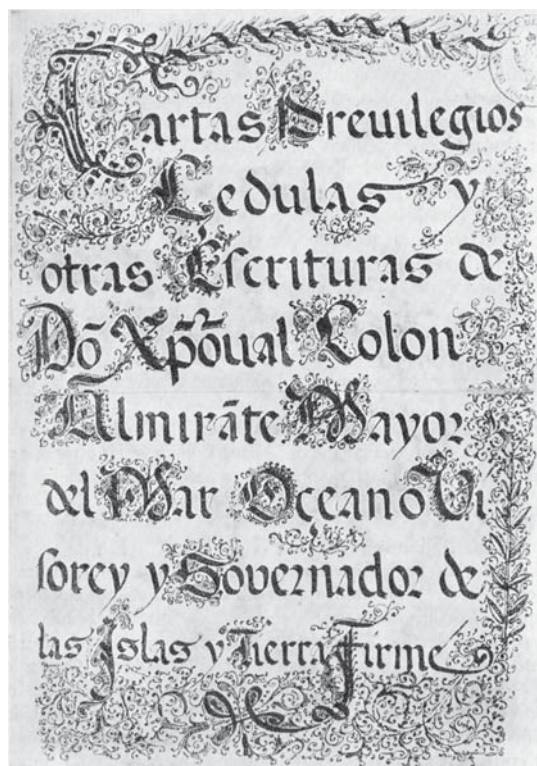 Cartas Preuilegios
Cedulas y
otras Escrituras de
Dõ Xp̃oual Colon
Almirãte Mayor
del Mar Oçeano Vi
sorey y Governador de
las Islas y Tierra Firme